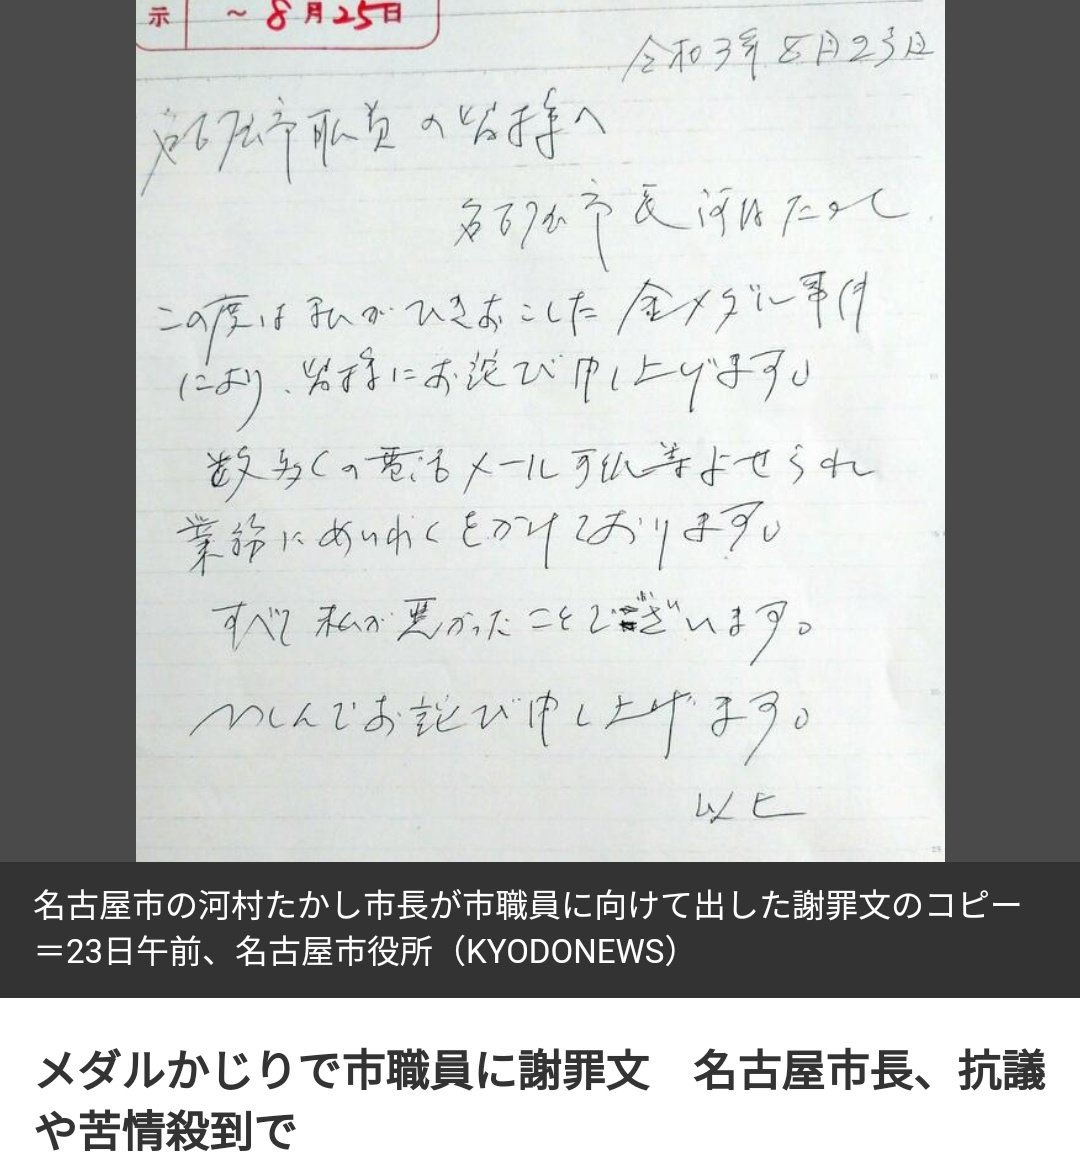 示 ～8月25日
令和3年8月23日
名古屋市職員の皆様へ
名古屋市長 河村たかし
この度は私がひきおこした金メダル事件
により、皆様にお詫び申し上げます。
数多くの電話メール手紙等よせられ
業務にめいわくをかけております。
すべて私が悪かったことでございます。
つつしんでお詫び申し上げます。
以上
名古屋市の河村たかし市長が市職員に向けて出した謝罪文のコピー
＝23日午前、名古屋市役所（KYODONEWS）
メダルかじりで市職員に謝罪文　名古屋市長、抗議
や苦情殺到で